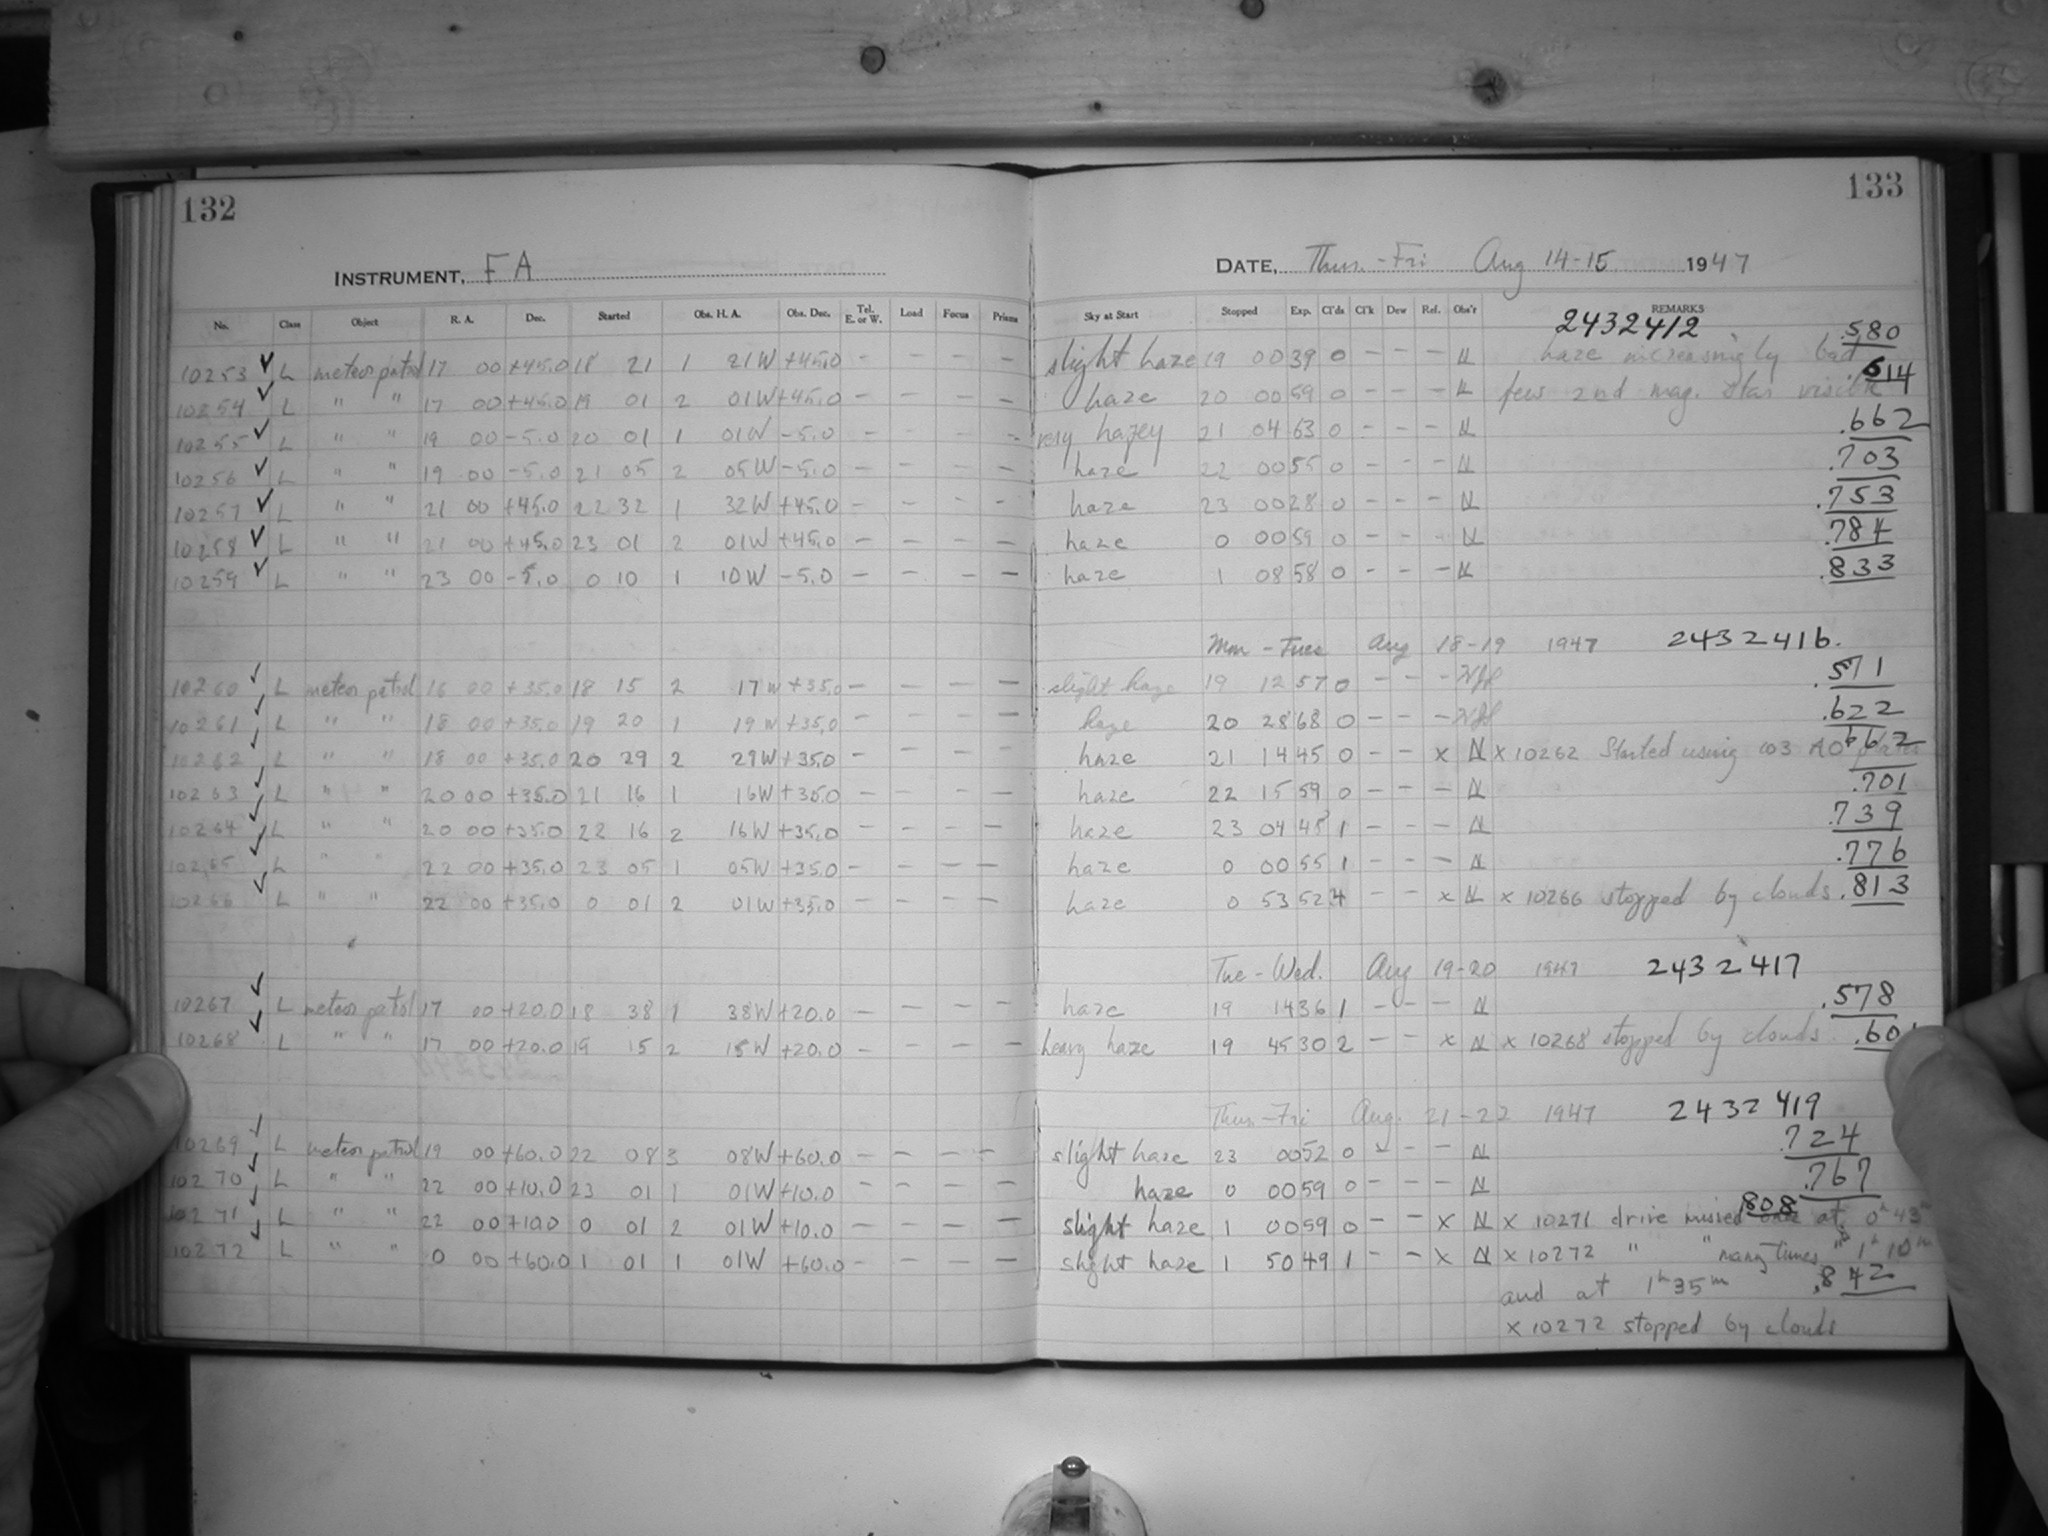 132
133
INSTRUMENT, FA
DATE, Thurs.-Fri Aug 14-15 1947
No. Class Object R. A. Dec. Started Obs. H. A. Obs. Dec. Tel. E. or W. Load Focus Prisms Sky at Start Stopped Exp. Cl'ds Cl'k Dew Ref. Obs'r REMARKS
2432412
10253 ✓ L meteor patrol 17 00 +45.0 18 21 1 21W +45.0 - - - - slight haze 19 00 39 0 - - - N haze increasingly bad .580
10254 ✓ L " " 17 00 +45.0 19 01 2 01W +45.0 - - - - haze 20 00 59 0 - - - N few 2nd mag. stars visible .614
10255 ✓ L " " 19 00 -5.0 20 01 1 01W -5.0 - - - - very hazey 21 04 63 0 - - - N .662
10256 ✓ L " " 19 00 -5.0 21 05 2 05W -5.0 - - - - haze 22 00 55 0 - - - N .703
10257 ✓ L " " 21 00 +45.0 22 32 1 32W +45.0 - - - - haze 23 00 28 0 - - - N .753
10258 ✓ L " " 21 00 +45.0 23 01 2 01W +45.0 - - - - haze 0 00 59 0 - - - N .784
10259 ✓ L " " 23 00 -5.0 0 10 1 10W -5.0 - - - - haze 1 08 58 0 - - - N .833
Mon - Tues Aug 18-19 1947 2432416.
10260 ✓ L meteor patrol 16 00 +35.0 18 15 2 17W +35.0 - - - - slight haze 19 12 57 0 - - - .571
10261 ✓ L " " 18 00 +35.0 19 20 1 19W +35.0 - - - - haze 20 28 68 0 - - - .622
10262 ✓ L " " 18 00 +35.0 20 29 2 29W +35.0 - haze 21 14 45 0 - - x N x 10262 Started using 103 AO plates .662
10263 ✓ L " " 20 00 +35.0 21 16 1 16W +35.0 - - - - haze 22 15 59 0 - - - N .701
10264 ✓ L " " 20 00 +35.0 22 16 2 16W +35.0 - - - - haze 23 04 48 1 - - - N .739
10265 ✓ L " " 22 00 +35.0 23 05 1 05W +35.0 - - - - haze 0 00 55 1 - - - N .776
10266 ✓ L " " 22 00 +35.0 0 01 2 01W +35.0 - - - - haze 0 53 52 4 - - x N x 10266 stopped by clouds .813
Tue - Wed. Aug 19-20 1947 2432417
10267 ✓ L meteor patrol 17 00 +20.0 18 38 1 38W +20.0 - - - - haze 19 14 36 1 - - - N .578
10268 ✓ L " " 17 00 +20.0 19 15 2 15W +20.0 - - - - heavy haze 19 45 30 2 - - x N x 10268 stopped by clouds .60
Thurs-Fri Aug. 21-22 1947 2432419
10269 ✓ L meteor patrol 19 00 +60.0 22 08 3 08W +60.0 - - - - slight haze 23 00 52 0 - - - N .724
10270 ✓ L " " 22 00 +10.0 23 01 1 01W +10.0 - - - - haze 0 00 59 0 - - - N .767
10271 ✓ L " " 22 00 +10.0 0 01 2 01W +10.0 - - - - slight haze 1 00 59 0 - - x N x 10271 drive missed once at 0h 43m .808
10272 ✓ L " " 0 00 +60.0 1 01 1 01W +60.0 - - - - slight haze 1 50 49 1 - - x N x 10272 " " many times " 1h 10m
and at 1h 35m .842
x 10272 stopped by clouds